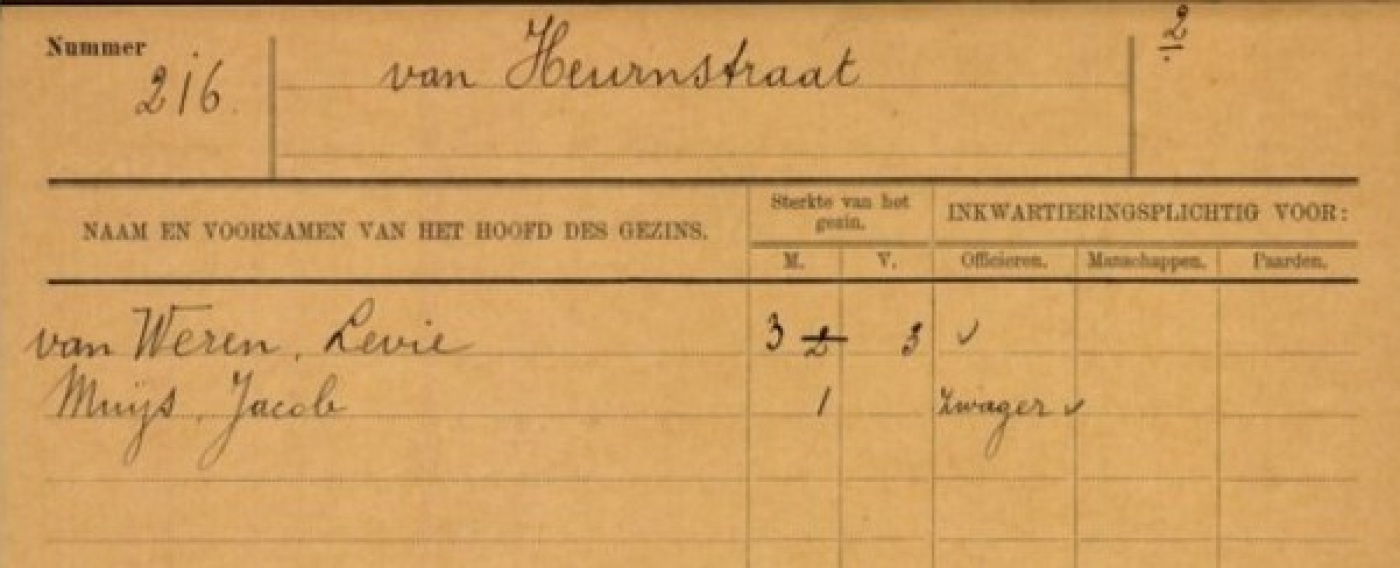 Nummer 216. van Heurnstraat 2
NAAM EN VOORNAMEN VAN HET HOOFD DES GEZINS. Sterkte van het gezin. INKWARTIERINGSPLICHTIG VOOR:
M. V. Officieren. Manschappen. Paarden.
van Weren, Levie 3 2 3 ✓
Muijs, Jacob 1 Zwager ✓